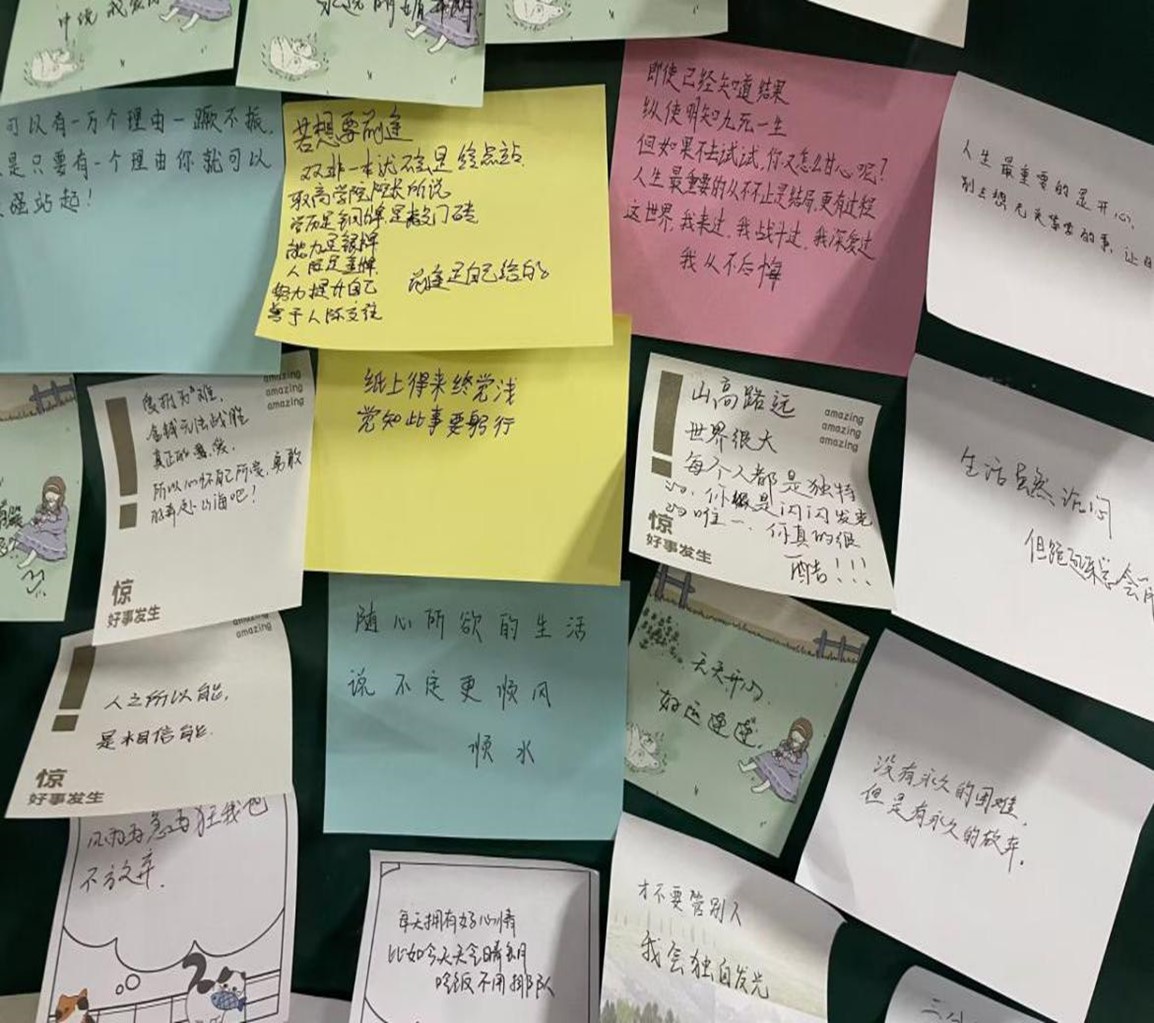 可以有一万个理由一蹶不振，
是只要有一个理由你就可以
强站起！
若想要前途
双非一本学不会是终点站
取高学院院长所说
学历是铜牌是敲门砖
能力是银牌
人际是金牌
努力提升自己
善于人际交往
前途是自己给的
即使已经知道结果
纵使明知九死一生
但如果不去试试，你又怎么甘心呢？
人生最重要的从不止是结局，更有过程
这世界，我来过，我战斗过，我深爱过
我从不后悔
人生最重要的是开心，
别去想无关紧要的事，让
amazing
amazing
amazing
真正的勇
所以心怀自己所爱，勇敢
吧！
惊
好事发生
纸上得来终觉浅
觉知此事要躬行
amazing
amazing
amazing
山高路远
世界很大
每个人都是独特
的，你就是闪闪发光
的唯一，你真的很
酷！！！
惊
好事发生
生活虽然沉闷
但跑起来总会有
amazing
amazing
人之所以能，
是相信能．
惊
好事发生
随心所欲的生活
说不定更顺风
顺水
天天开心
好运连连
没有永久的困难，
但是有永久的放弃．
风雨再急再狂我也
不放弃．
每天拥有好心情
比如今天天会晴朗
吃饭不用排队
才不要管别人
我会独自发光